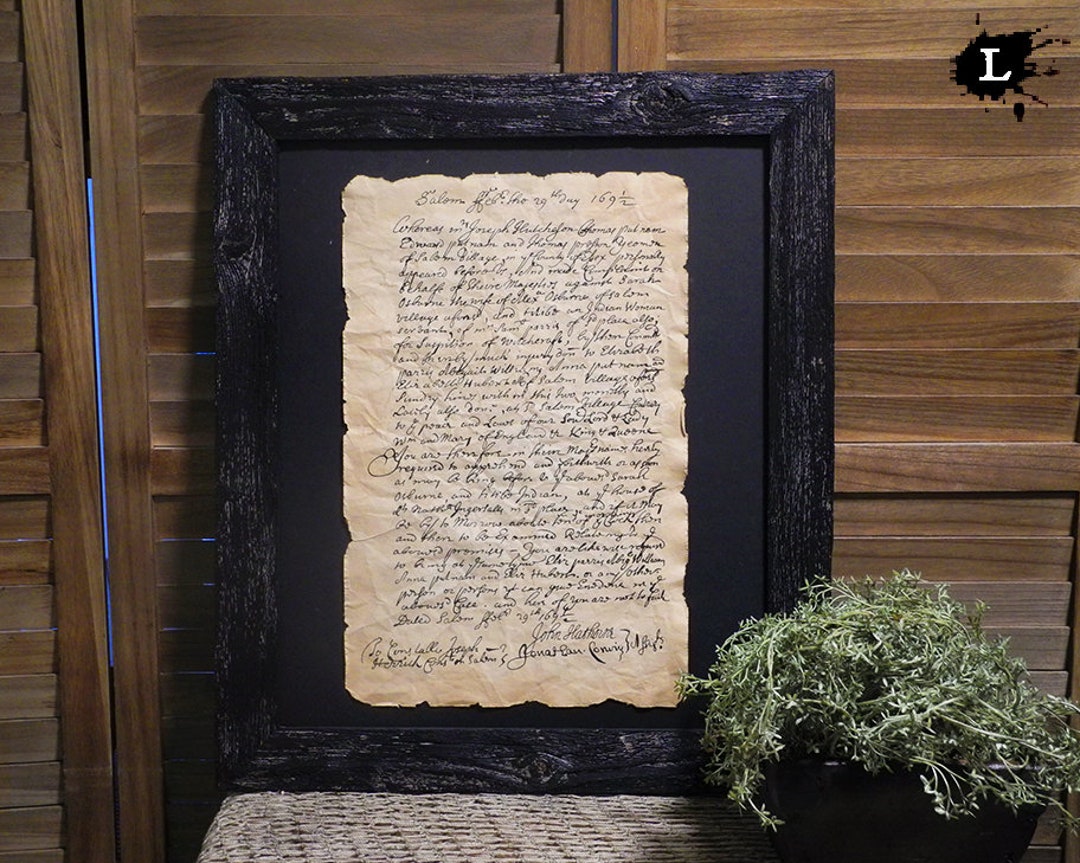 L
Salem ffeb: the 29th day 169½
Whereas mrs Joseph Hutcheson Thomas putnam
Edward putnam and Thomas preston Yeomen
of Salem Village, in ye County of Essex personally
appeared before us, And made Complaint on
behalfe of theire Majesties against Sarah
Osburne the wife of Alexa Osburne of Salem
village afores, and titibe an Indian Woman
servant, of mr Saml parris of sd place also,
for Suspition of Witchcraft, by them Committed
and thereby much injury don to Elizabeth
parris Abigail Williams Anna putnam and
Elizabeth Hubert all of Salem Village
Sundry times with in this two months and
Lately also don, at sd Salem Village
to ye peace and Laws of our Sovr Lord & Lady
Wm and Mary of England &c King & Queene
You are therefore in theire Majts names hereby
required to apprehend and forthwith or as soon
as may be bring before us ye aboves Sarah
Osburne, and titibe Indian, at ye house of
Lt Nathll Ingersalls in sd place, and if it may
be by to Morrow aboute ten of ye Clock
morning
then
and there to be Examined Relateing to ye
aboves premises — You are likewise required
to bring at ye same tyme Eliz parris Abig Williams
Anna putnam and Eliz Hubert. or any other
person or persons yt can give Evedence in ye
aboves Case. and here of You are not to fail
Dated Salem ffeb 29th 169½
John Hathorne
Jonathan Corwin } Assists
To Constable Joseph
Herrick Const in Salem }